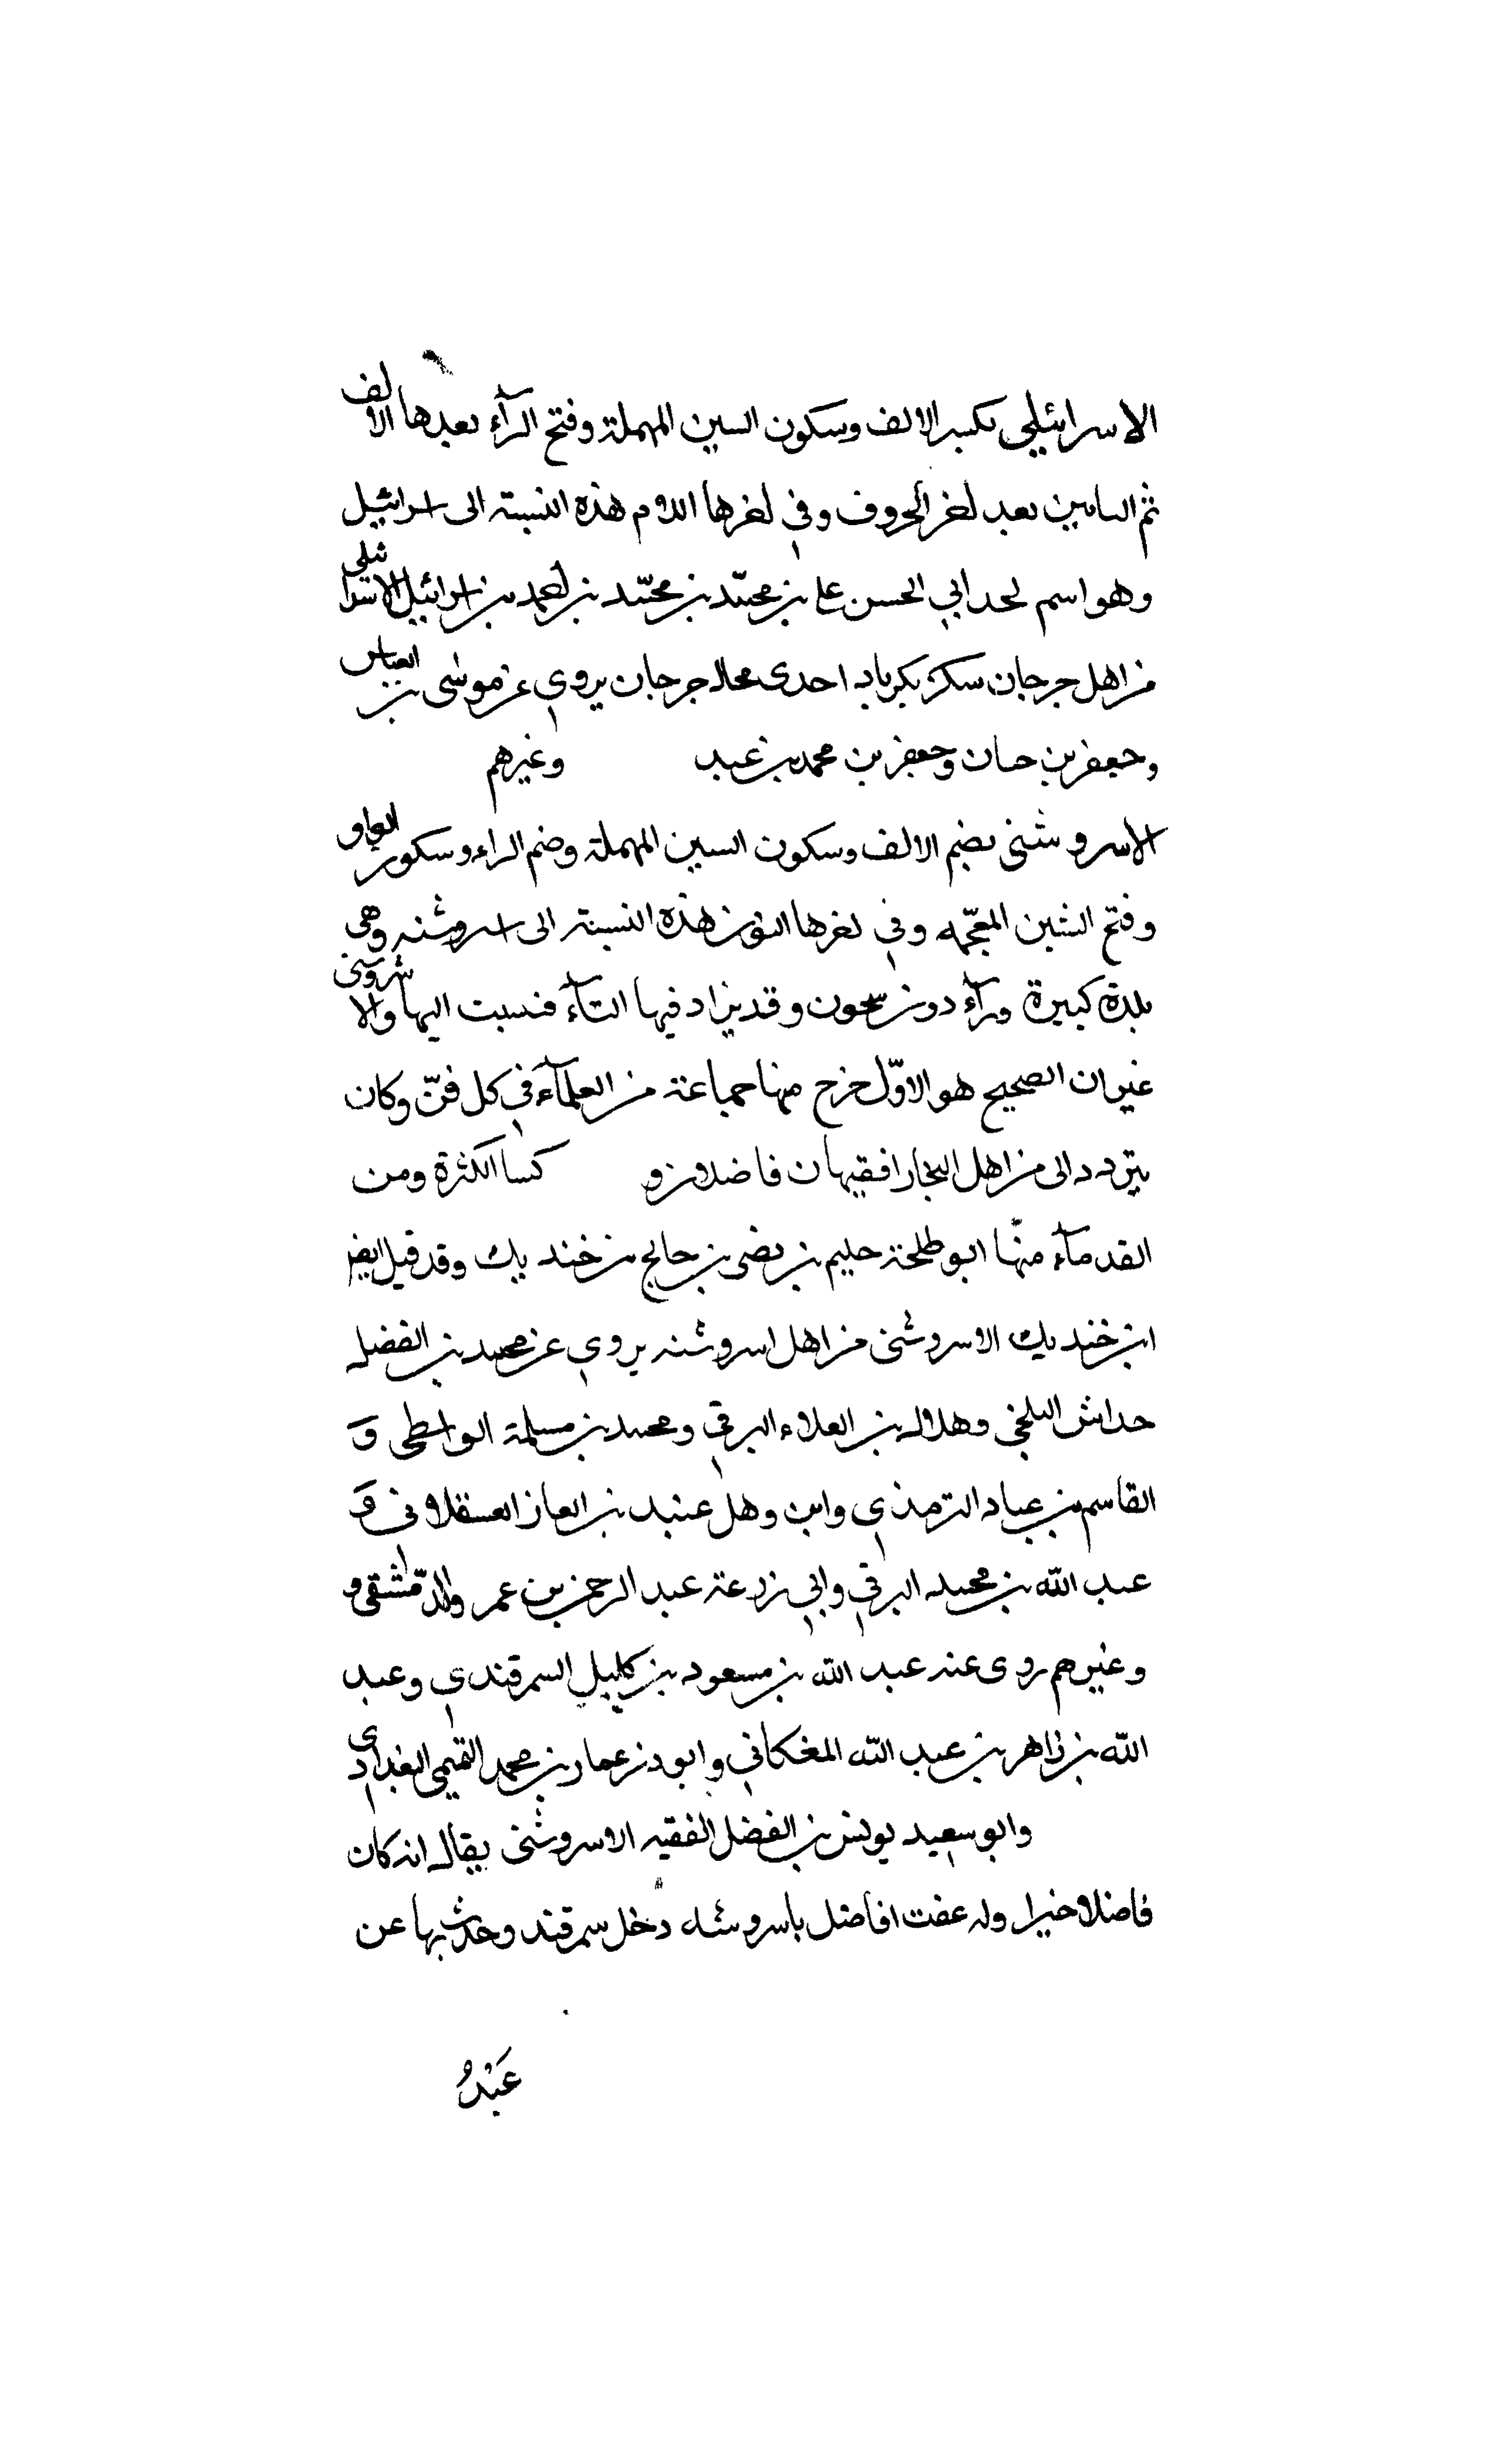 الاسرائيلي بكسر الالف وسكون السين المهملة وفتح الرآء بعدها الالف
ثم اليامين بعد لخر الحروف وفي لخرها اللام هذه النسبة الى اسرائيل
وهو اسم لجد ابي الحسن علي بن محمد بن محمد بن احمد بن اسرائيل الاسرائيلي
من اهل جرجان سكن بكرباد احدى محال جرجان يروي عن موسى بن العباس
وجعفر بن حبان وجعفر بن محمد بن عبد وغيرهم
الاسروشنى بضم الالف وسكون السين المهملة وضم الراء وسكون الواو
وفتح الشين المعجمه وفي لخرها النون هذه النسبة الى اسروشنه وهي
بلدة كبيرة ورآء دون سيحون وقد يزاد فيها التآء فنسبت اليها والا شروسنى
غير ان الصحيح هو الاوّل خرج منها جماعة من العلمآء في كل فنّ وكان
يتردد الى من اهل البخار افقيهان فاضلان و كسا الكثرة ومن
القدمآء منها ابو طلحة حليم بن نضى بن حالج بن خنديك وقد قيل ايضا
ابن خنديك الاسروشنى من اهل اسروشنه يروي عن محمد بن الفضل
حداش البلخي وهلال بن العلاء البرقي ومحمد بن مسلمة الواسطى و
القاسم بن عباد الترمذي وابن وهل عنبد بن العاز العسقلاني و
عبد الله بن محمد البرقي وابي زرعة عبد الرحمن بن عمر والدمشقي و
وغيرهم روى عنه عبد الله بن مسعود بن كليل السمرقندي وعبد
الله بن زاهر بن عبد الله المغكاني وابو ذر عمار بن محمد التميمي البغدادي
وابو سعيد يونس بن الفضل الفقيه الاسروشنى يقال انه كان
فاضلا خيرا وله عفت افاضل باسروشنه دخل سمرقند وحدث بها عن
عَبْدُ